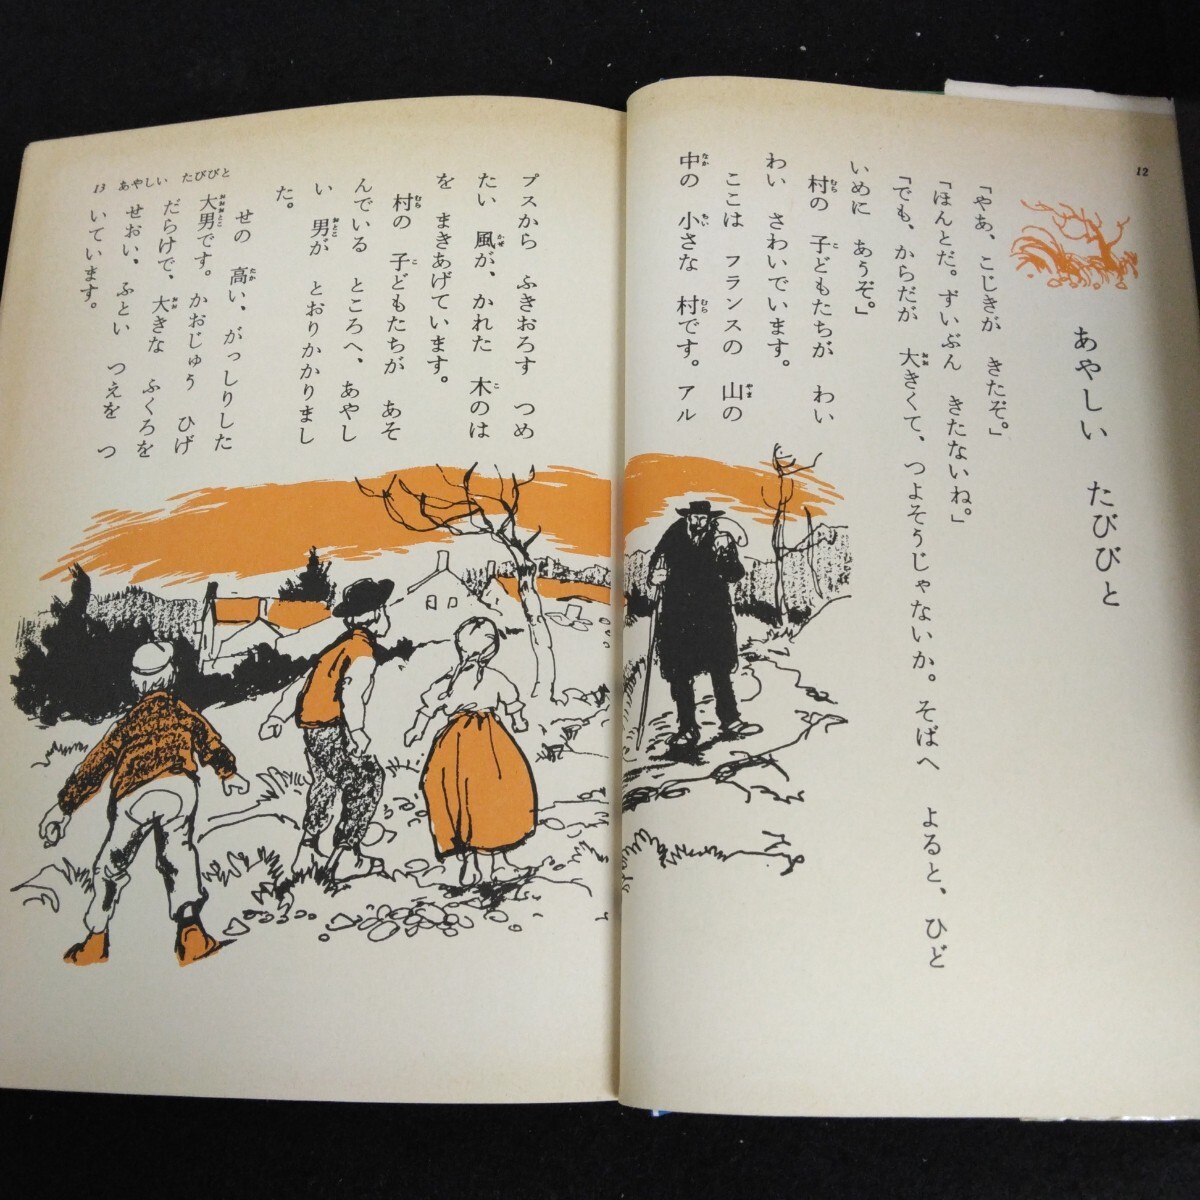 12
あやしい たびびと
「やあ、こじきが きたぞ。」
「ほんとだ。ずいぶん きたないね。」
「でも、からだが 大きくて、つよそうじゃないか。そばへ よると、ひど
いめに あうぞ。」
村の 子どもたちが わい
わい さわいでいます。
ここは フランスの 山の
中の 小さな 村です。アル
プスから ふきおろす つめ
たい 風が、かれた 木のは
を まきあげています。
村の 子どもたちが あそ
んでいる ところへ、あやし
い 男が とおりかかりまし
た。
せの 高い、がっしりした
大男です。かおじゅう ひげ
だらけで、大きな ふくろを
せおい、ふとい つえを つ
いています。
13 あやしい たびびと